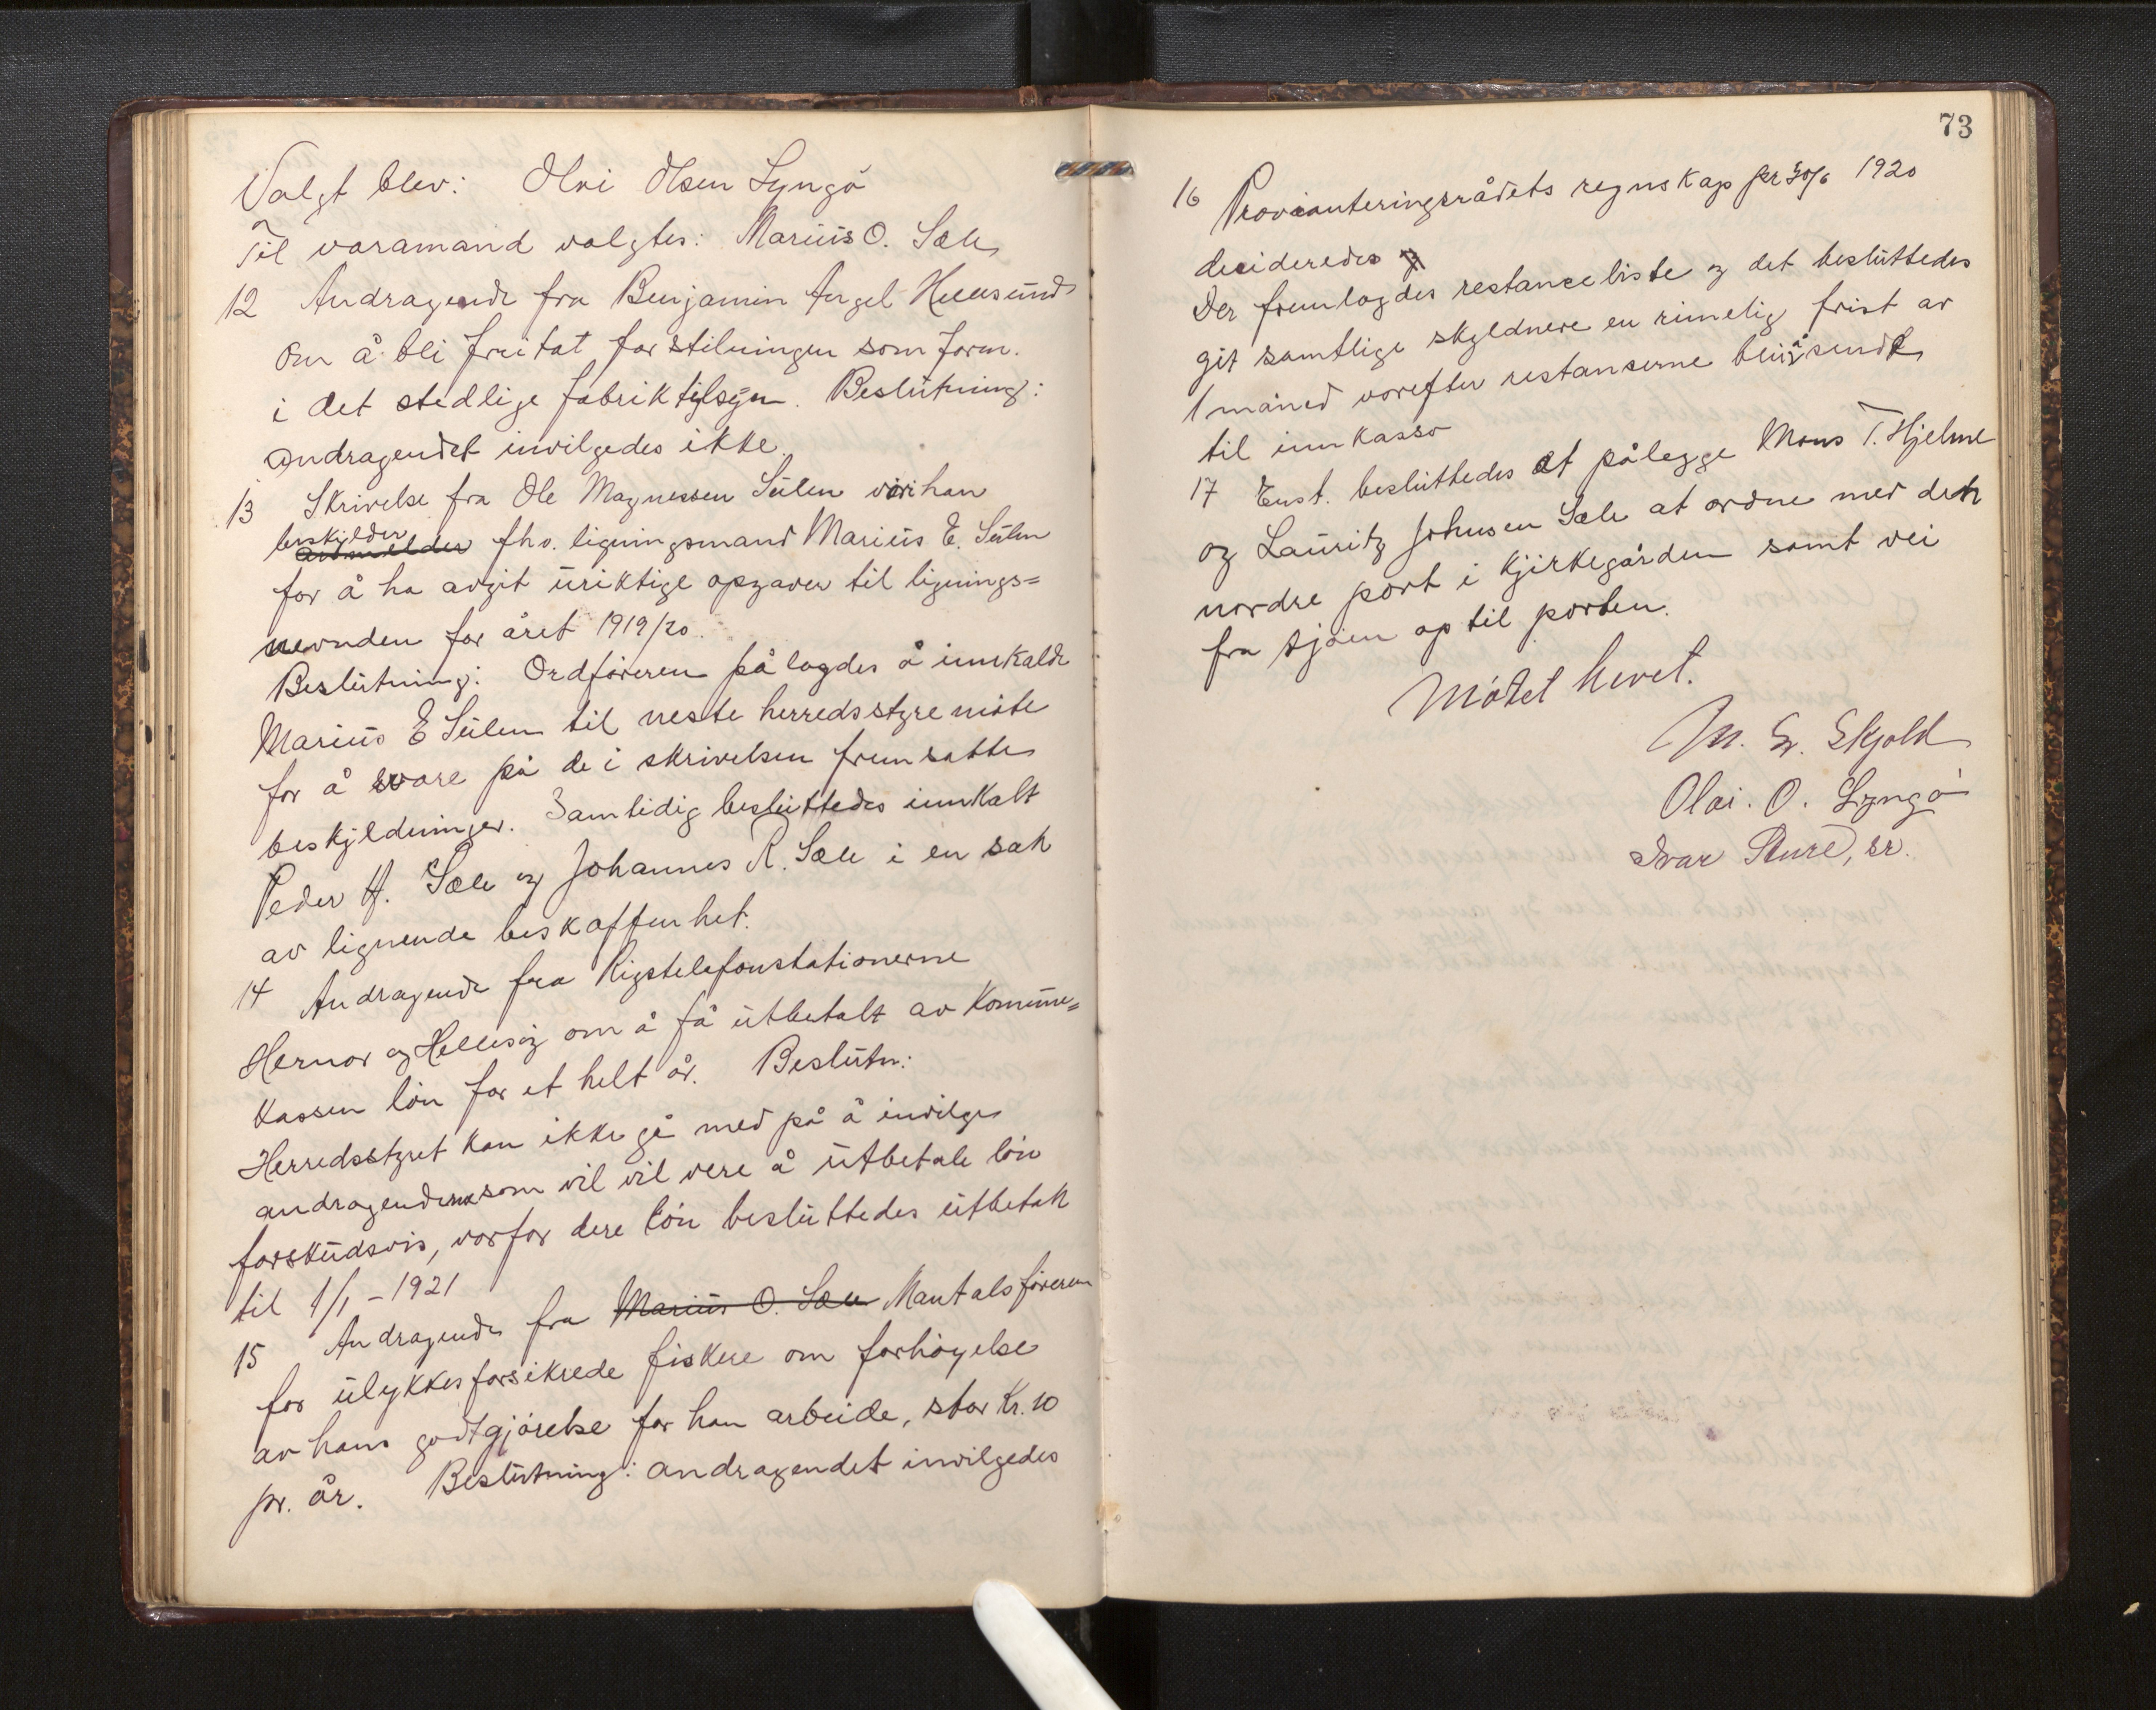 Valgt blev: Olai Olsen Lyngö
Til varamand valgtes: Marius O. Sæle
12 Andragende fra Benjamin Angel Hellesund
om å bli fritat for stilningen som form.
i det stedlige fabriktilsyn. Beslutning:
Andragendet invilgedes ikke.
13 Skrivelse fra Ole Magnessen Sulen vori han
beskylder
fhv. ligningsmand Marius E. Sulen
for å ha avgit uriktige opgaver til lignings=
nevnden for året 1919/20.
Beslutning: Ordföreren pålagdes å innkalde
Marius E Sulen til neste herredsstyremöte
for å svare på de i skrivelsen fremsatte
beskyldninger. Samtidig besluttedes innkalt
Peder H. Sæle og Johannes R. Sæle i en sak
av lignende beskaffenhet.
14 Andragende fra Rigstelefonstationerne
Hernar og Hellesöy om å få utbetalt av Kommune=
kassen lön for et helt år. Beslutn:
Herredsstyret kan ikke gå med på å invilge
andragenderne som vil vil vere å utbetale lön
forskudsvis, vorfor dere lön besluttedes utbetalt
til 1/1 - 1921
15 Andragende fra Marius O. Sæle Mantalsföreren
for ulykkesforsikrede fiskere om forhöyelse
av hans godtgjörelse for han arbeide, stor Kr. 10
pr. år. Beslutning: andragendet invilgedes
73
16 Provianteringsrådets regnskap pr 30/6 1920
decideredes
Der fremlagdes restanceliste og det besluttedes
git samtlige skyldnere en rimelig frist av
1 måned vorefter restanserne blir å sende
til innkasso
17 Enst. besluttedes at pålegge Mons T. Hjelme
og Lauritz Johnsen Sæle at ordne med den
nordre port i kjirkegården samt vei
fra sjöen op til porten.
Mötet hevet.
M. Skjold
Olai. O. Lyngö
Ivar Sture, sr.